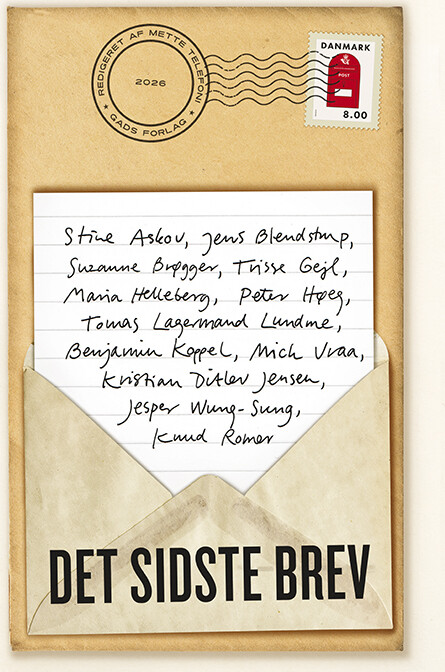 REDIGERET AF METTE TELEFONI
2026
★ GADS FORLAG ★
DANMARK
POST
8.00
Stine Askov, Jens Blendstrup,
Suzanne Brøgger, Trisse Gejl,
Maria Helleberg, Peter Høeg,
Tomas Lagermand Lundme,
Benjamin Koppel, Mich Vraa,
Kristian Ditlev Jensen,
Jesper Wung-Sung,
Knud Romer
DET SIDSTE BREV